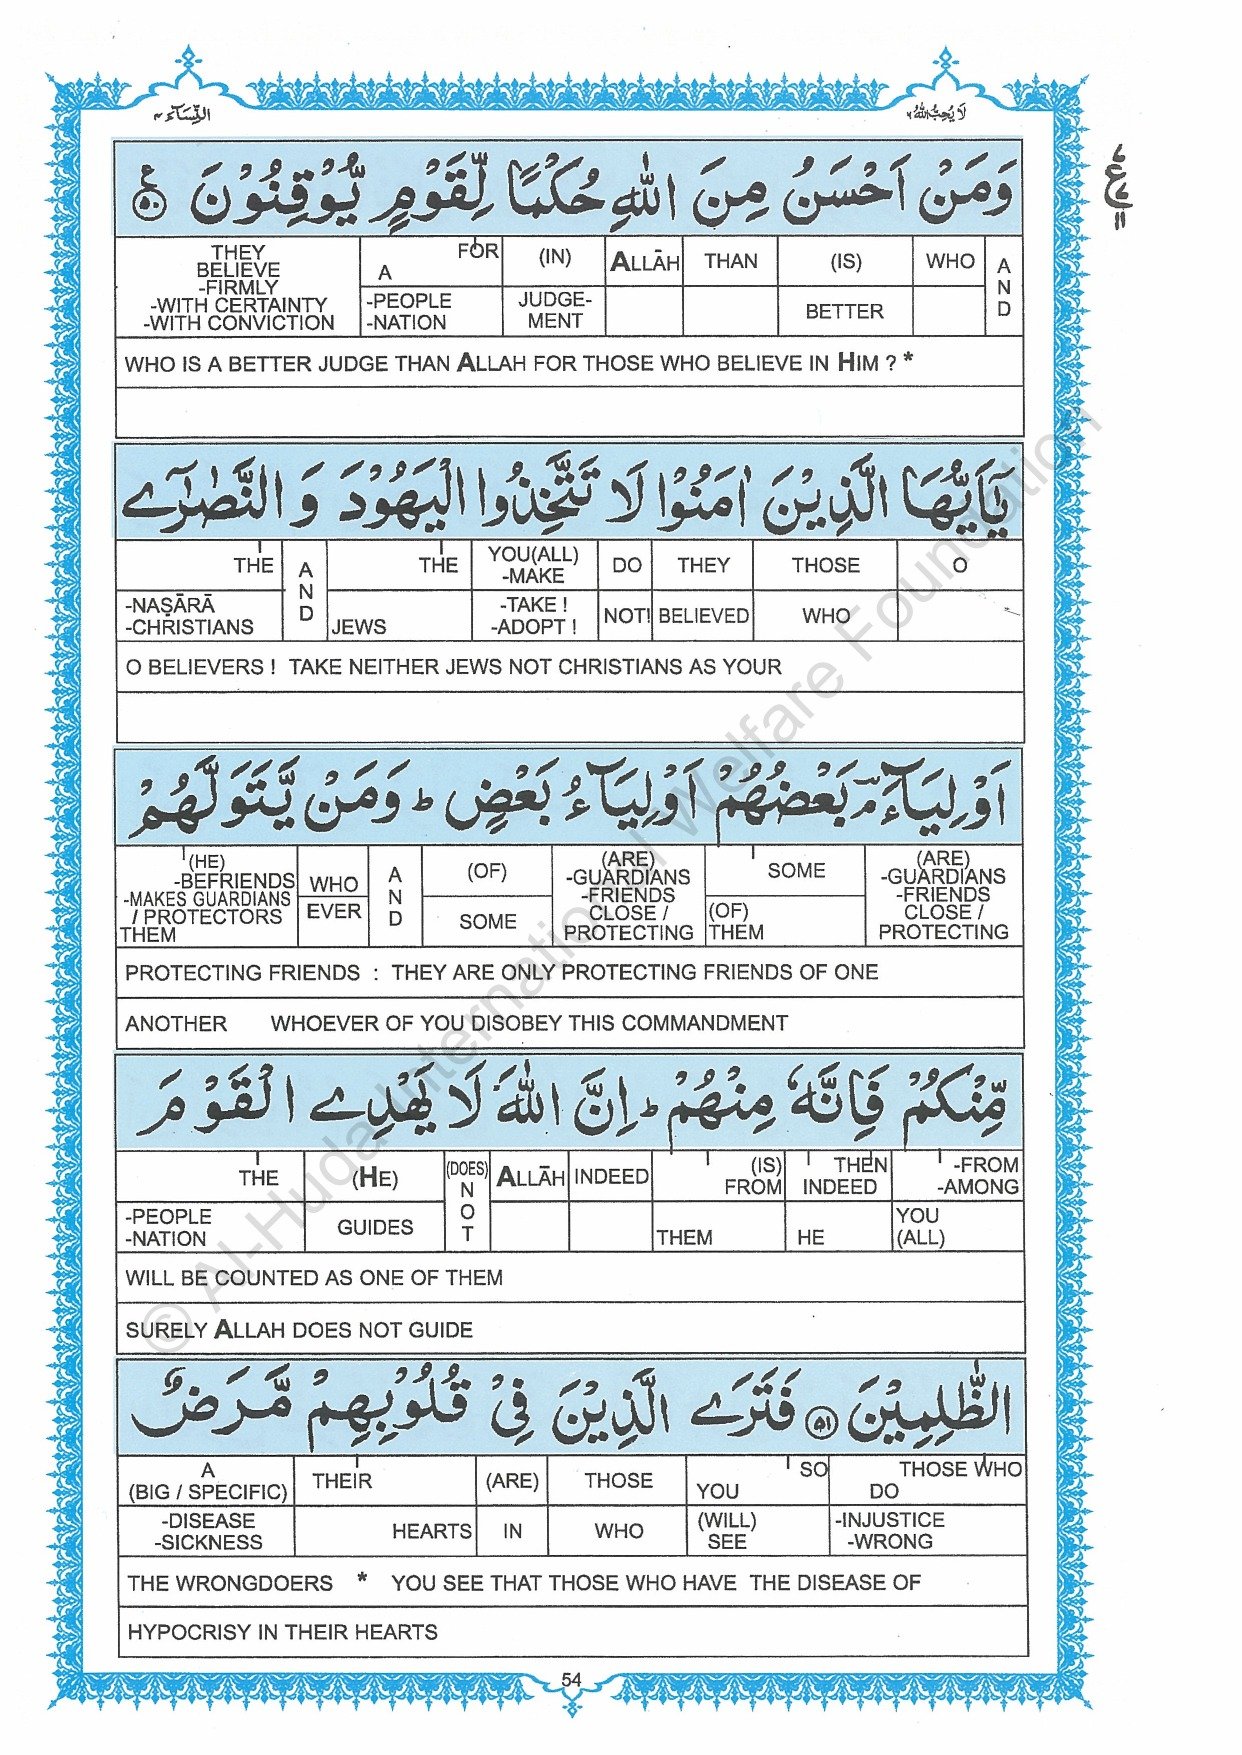 النِّسَآء ٤
لَا يُحِبُّ اللّٰهُ ٦
وَمَنْ اَحْسَنُ مِنَ اللّٰهِ حُكْمًا لِّقَوْمٍ يُّوْقِنُوْنَ ۝٥٠
AND | WHO | (IS) BETTER | THAN | ALLĀH | (IN) JUDGE-MENT | FOR A -PEOPLE -NATION | THEY BELIEVE -FIRMLY -WITH CERTAINTY -WITH CONVICTION
WHO IS A BETTER JUDGE THAN ALLAH FOR THOSE WHO BELIEVE IN HIM ? *
يٰۤاَيُّهَا الَّذِيْنَ اٰمَنُوْا لَا تَتَّخِذُوا الْيَهُوْدَ وَ النَّصٰرٰۤى
O | THOSE WHO | THEY BELIEVED | DO NOT! | YOU(ALL) -MAKE -TAKE ! -ADOPT ! | THE JEWS | AND | THE -NAṢĀRĀ -CHRISTIANS
O BELIEVERS ! TAKE NEITHER JEWS NOT CHRISTIANS AS YOUR
اَوْلِيَآءَ ۘ بَعْضُهُمْ اَوْلِيَآءُ بَعْضٍ ؕ وَمَنْ يَّتَوَلَّهُمْ
(ARE) -GUARDIANS -FRIENDS CLOSE / PROTECTING | SOME (OF) THEM | (ARE) -GUARDIANS -FRIENDS CLOSE / PROTECTING | (OF) SOME | AND | WHO EVER | (HE) -BEFRIENDS -MAKES GUARDIANS / PROTECTORS THEM
PROTECTING FRIENDS : THEY ARE ONLY PROTECTING FRIENDS OF ONE
ANOTHER WHOEVER OF YOU DISOBEY THIS COMMANDMENT
مِّنْكُمْ فَاِنَّهٗ مِنْهُمْ ؕ اِنَّ اللّٰهَ لَا يَهْدِى الْقَوْمَ
-FROM -AMONG YOU (ALL) | THEN INDEED HE | (IS) FROM THEM | INDEED | ALLĀH | (DOES) NOT | (HE) GUIDES | THE -PEOPLE -NATION
WILL BE COUNTED AS ONE OF THEM
SURELY ALLAH DOES NOT GUIDE
الظّٰلِمِيْنَ ۝٥١ فَتَرَى الَّذِيْنَ فِىْ قُلُوْبِهِمْ مَّرَضٌ
THOSE WHO DO -INJUSTICE -WRONG | SO YOU (WILL) SEE | THOSE WHO | (ARE) IN | THEIR HEARTS | A (BIG / SPECIFIC) -DISEASE -SICKNESS
THE WRONGDOERS * YOU SEE THAT THOSE WHO HAVE THE DISEASE OF
HYPOCRISY IN THEIR HEARTS
54
© Al-Huda International Welfare Foundation